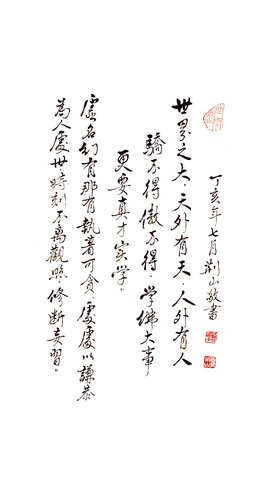 丁亥年七月 山敬書
世界之大,天外有天,人外有人
驕不得,傲不得,學佛大事
更要真才实学。
虛名幻有那有執著可貪,處處以謙恭
為人處世時刻不离觀照,修断妄習。